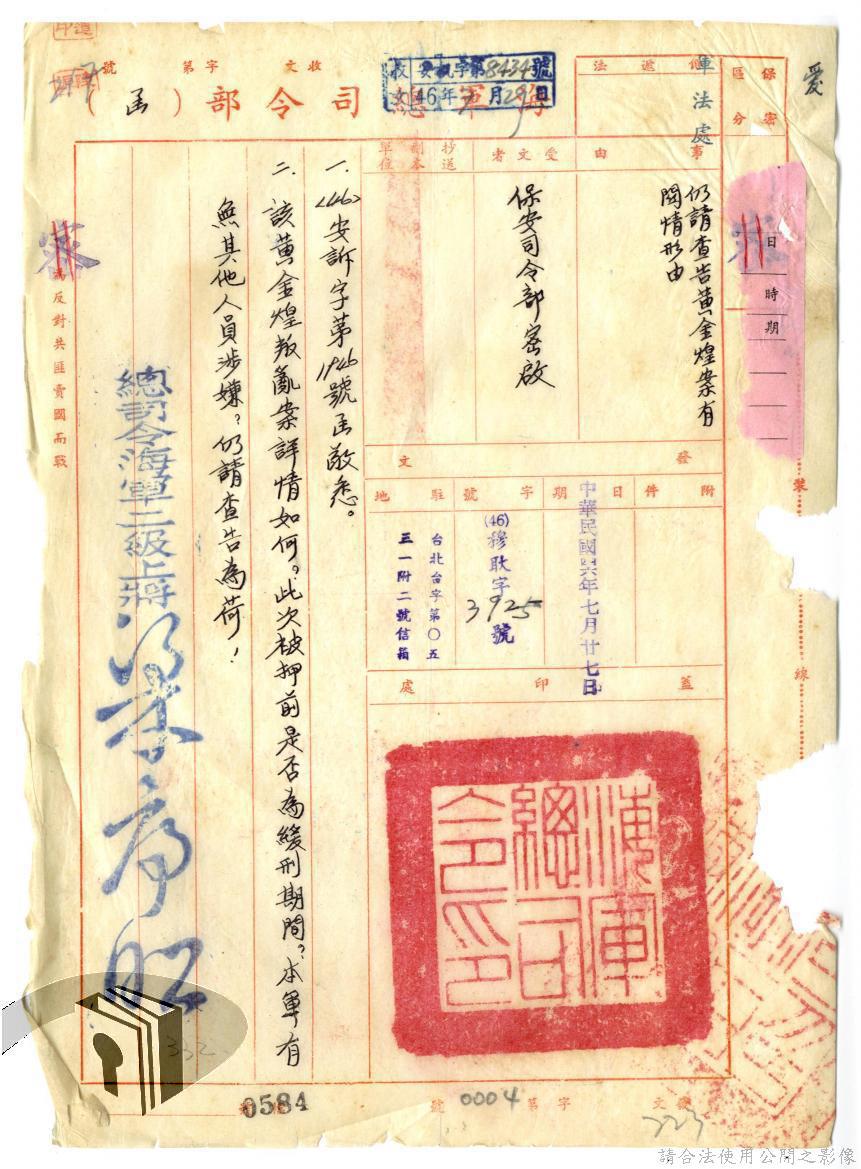 海軍總司令部（函）
收文 字第 號
收文 安 字第8434號
46年7月29日
保密區分
愛
軍法處
傳遞法
事由
仍請查告黃金煌案有
關情形由
受文者
保安司令部密啟
抄送副本單位
日
時期
發文
附件
日期
中華民國四六年七月廿七日
字號
(46)穆耿字
3925號
駐地
台北台字第〇五
三一附二號信箱
蓋印處
海軍
總司
令印
一、(46)安訴字第1946號函敬悉。
二、該黃金煌叛亂案詳情如何？此次被押前是否為緩刑期間？本軍有
無其他人員涉嫌？仍請查告為荷！
總司令海軍二級上將梁序昭
為反對共匪賣國而戰
裝
線
332
0584
發文 字第 號
0004
223
請合法使用公開之影像